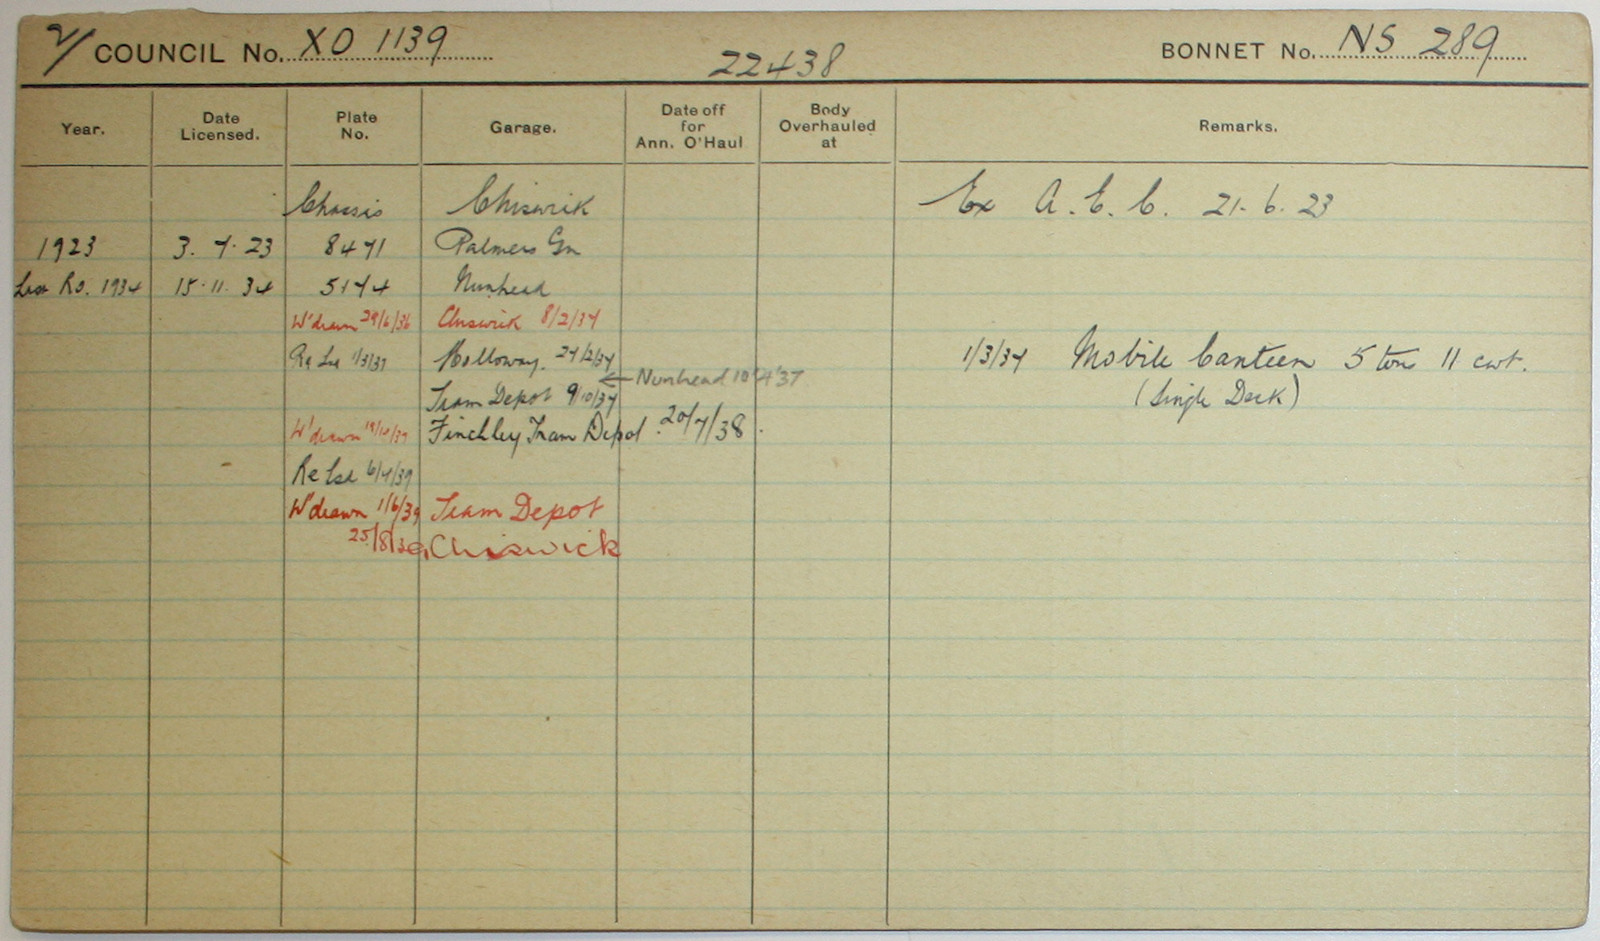 2/ COUNCIL No. XO 1139 22438 BONNET No. NS 289
Year. Date Licensed. Plate No. Garage. Date off for Ann. O'Haul Body Overhauled at Remarks.
Chassis Chiswick Ex A.E.C. 21.6.23
1923 3.7.23 8471 Palmers Gn
Last Rd. 1934 15.11.34 5174 Nunhead
W'drawn 29/6/36 Chiswick 8/2/37
Re Lsd 1/3/37 Holloway. 27/2/37 1/3/37 Mobile Canteen 5 tons 11 cwt.
← Nunhead 10'4'37
Tram Depot 9/10/37 (Single Deck)
W'drawn Finchley Tram Depot 20/7/38.
Re Lsd 6/4/39
W'drawn 1/6/39 Tram Depot
25/8/39, Chiswick